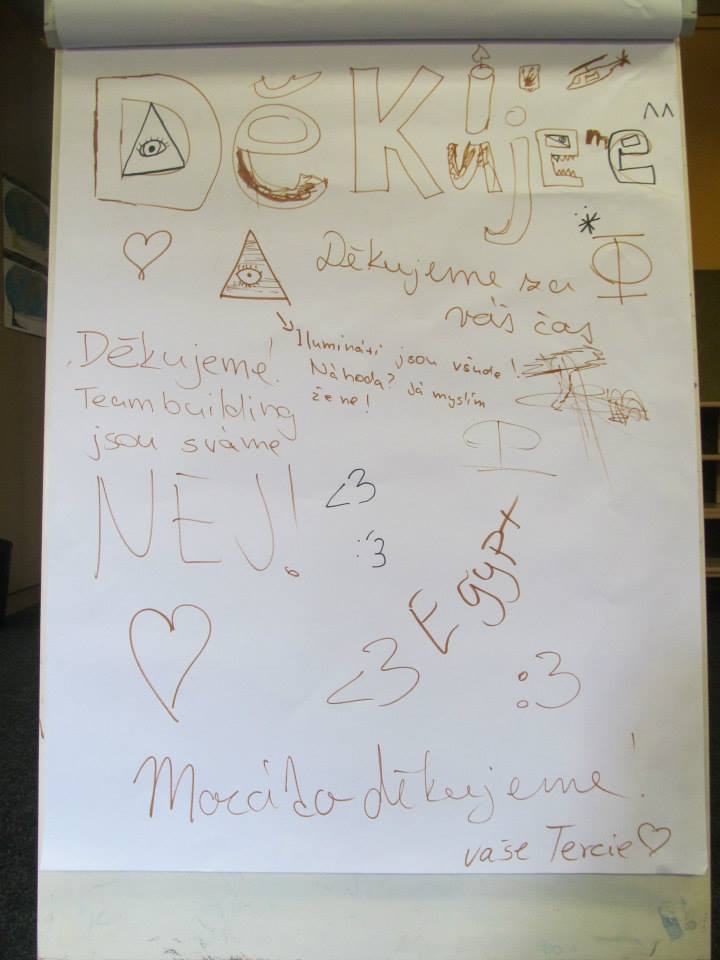 Děkujeme ^^
Děkujeme za
váš čas *
Φ
Ilumináti jsou všude!
Náhoda? Já myslím
že ne!
Děkujeme!
Teambuilding
jsou sváme
NEJ!
<3
:3
Egypt
<3 :3
děkujeme!
vaše Tercie